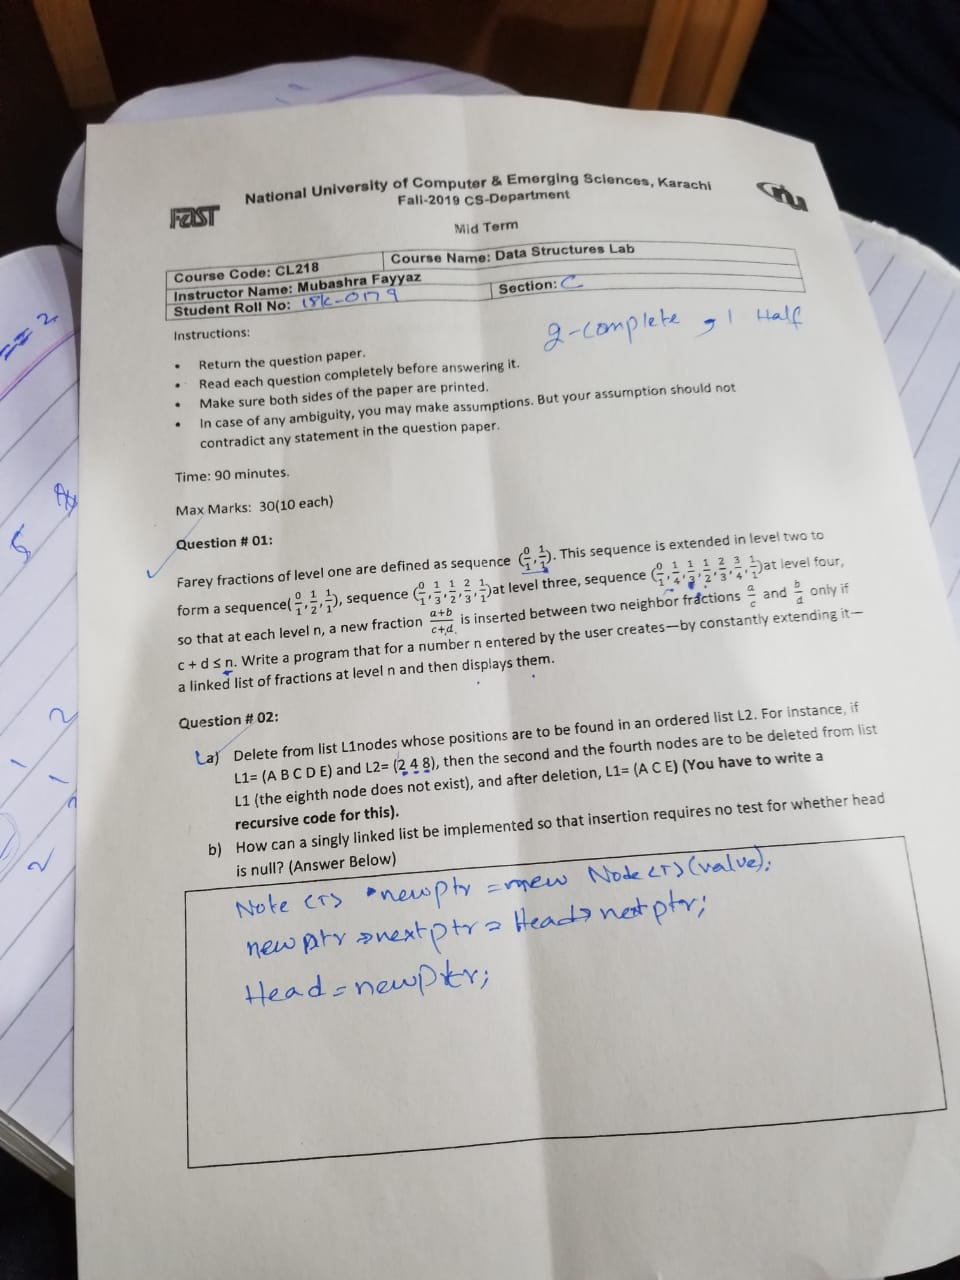 National University of Computer & Emerging Sciences, Karachi
Fall-2019 CS-Department
FAST
Mid Term
Course Code: CL218 Course Name: Data Structures Lab
Instructor Name: Mubashra Fayyaz
Student Roll No: 18k-0179 Section: C
Instructions:
2-complete , 1 Half
• Return the question paper.
• Read each question completely before answering it.
• Make sure both sides of the paper are printed.
• In case of any ambiguity, you may make assumptions. But your assumption should not
contradict any statement in the question paper.
Time: 90 minutes.
Max Marks: 30(10 each)
Question # 01:
Farey fractions of level one are defined as sequence (0/1, 1/1). This sequence is extended in level two to
form a sequence(0/1, 1/2, 1/1), sequence (0/1, 1/3, 1/2, 2/3, 1/1)at level three, sequence (0/1, 1/4, 1/3, 1/2, 2/3, 3/4, 1/1)at level four,
so that at each level n, a new fraction a+b/c+d is inserted between two neighbor fractions a/c and b/d only if
c + d ≤ n. Write a program that for a number n entered by the user creates—by constantly extending it—
a linked list of fractions at level n and then displays them.
Question # 02:
a) Delete from list L1nodes whose positions are to be found in an ordered list L2. For instance, if
L1= (A B C D E) and L2= (2 4 8), then the second and the fourth nodes are to be deleted from list
L1 (the eighth node does not exist), and after deletion, L1= (A C E) (You have to write a
recursive code for this).
b) How can a singly linked list be implemented so that insertion requires no test for whether head
is null? (Answer Below)
Note <T> *newptr = new Node<T>(value);
newptr→nextptr = Head→nextptr;
Head = newPtr;